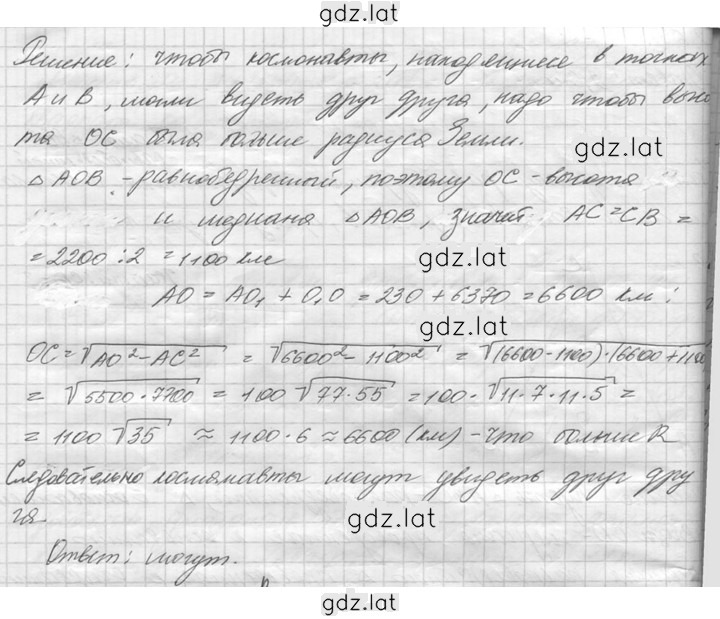 gdz.lat
Решение: чтобы космонавты, находящиеся в точках
А и В, могли видеть друг друга, надо чтобы высо
та ОС была больше радиуса Земли.
gdz.lat
△ AOB - равнобедренный, поэтому OC - высота
и медиана △AOB, значит AC = CB =
= 2200 : 2 = 1100 км
gdz.lat
AO = AO₁ + O₁O = 230 + 6370 = 6600 км ;
gdz.lat
OC = √AO² - AC² = √6600² - 1100² = √(6600 - 1100) · (6600 + 1100
= √5500 · 7700 = 100 √77 · 55 = 100 · √11 · 7 · 11 · 5 =
= 1100 √35 ≈ 1100 · 6 ≈ 6600 (км) - что больше R
Следовательно космонавты могут увидеть друг дру
га.
gdz.lat
Ответ: могут.
gdz.lat